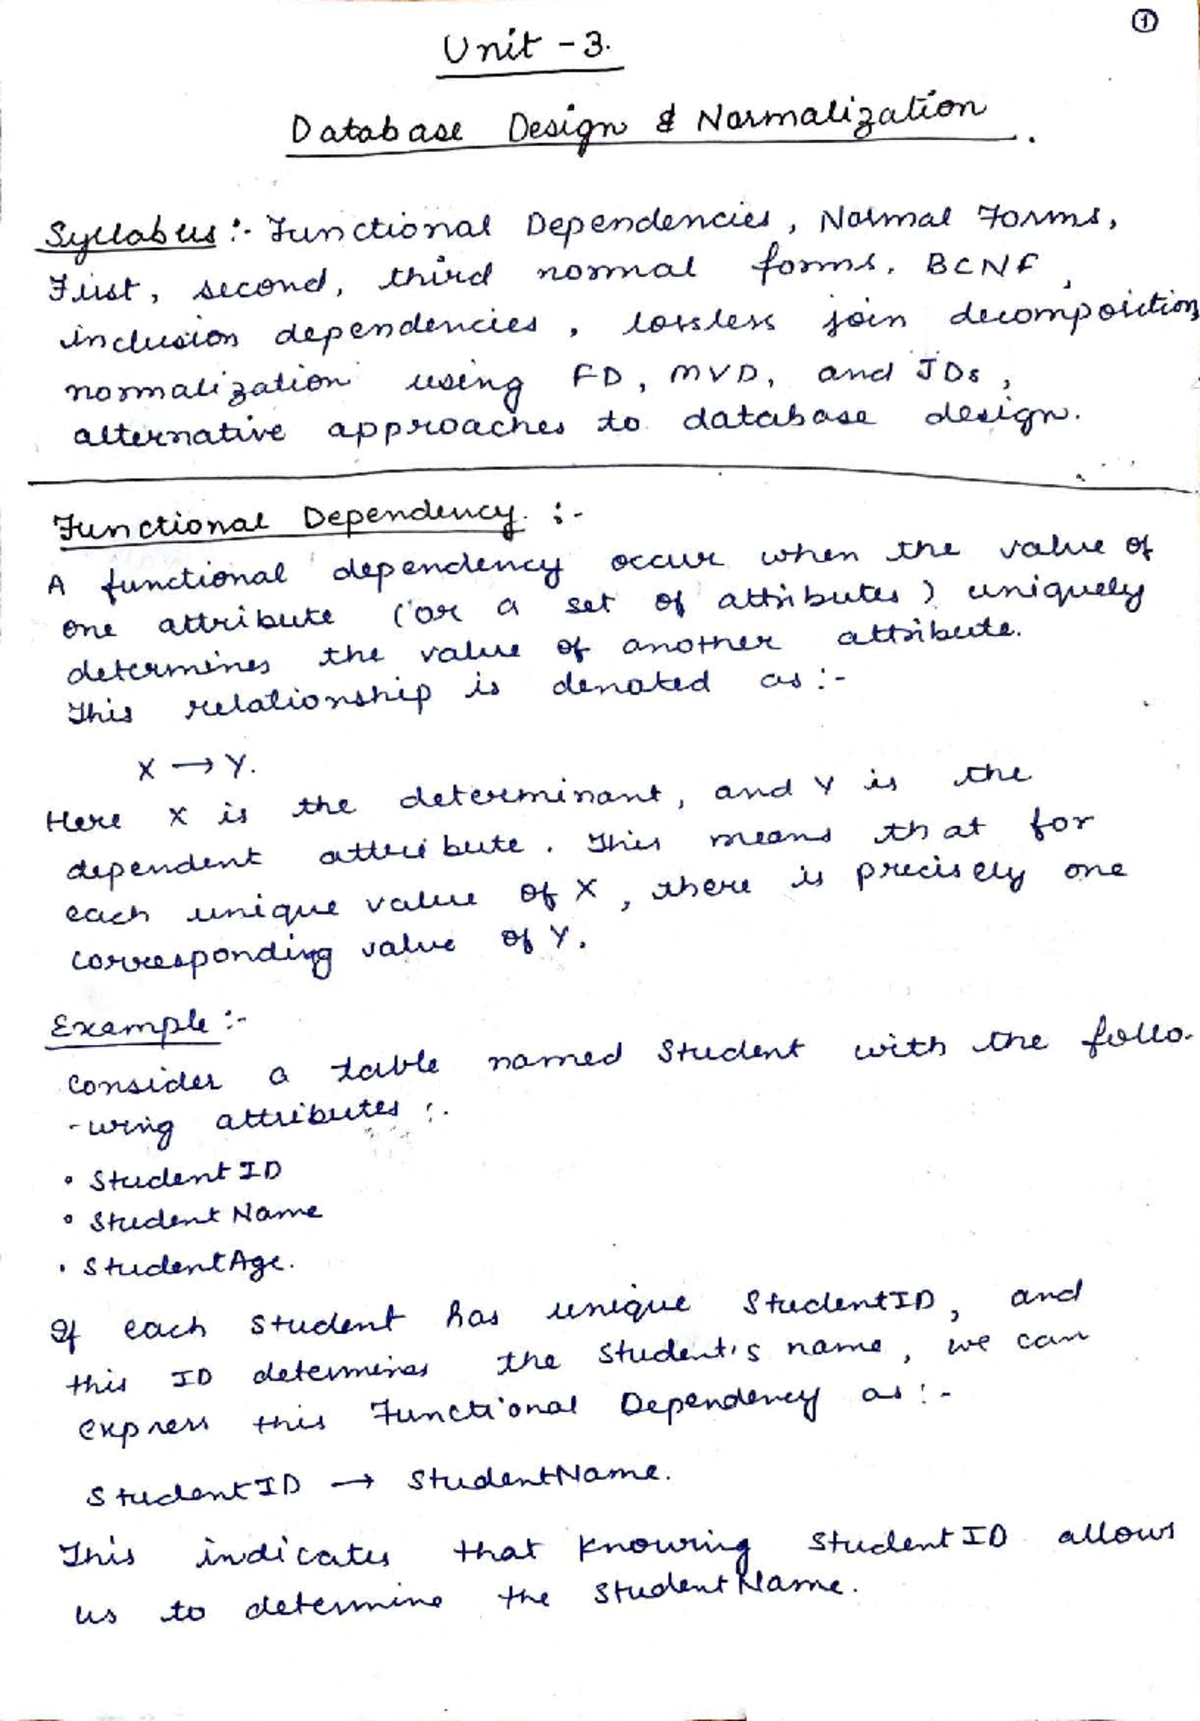 ①
Unit - 3.
Database Design & Normalization.
Syllabus :- Functional Dependencies, Normal Forms,
First, second, third normal forms. BCNF,
inclusion dependencies, lossless join decompoiction
normalization using FD, MVD, and JDs,
alternative approaches to database design.
Functional Dependency. :-
A functional dependency occur when the value of
one attribute (or a set of attributes) uniquely
determines the value of another attribute.
This relationship is denoted as :-
X → Y.
Here X is the determinant, and Y is the
dependent attribute. This means that for
each unique value of X, there is precisely one
corresponding value of Y.
Example :-
Consider a table named Student with the follo-
-wing attributes :.
• StudentID
• StudentName
• StudentAge.
If each student has unique StudentID, and
this ID determines the student's name, we can
express this Functional Dependency as :-
StudentID → StudentName.
This indicates that knowing StudentID allows
us to determine the StudentName.